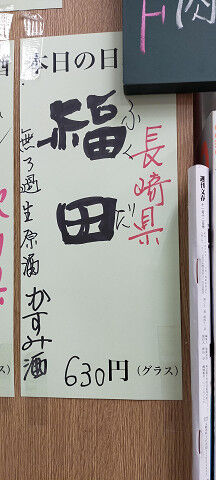 本日の日
長崎県
福田
ふくだ
無ろ過生原酒 かすみ酒
630円 (グラス)
週刊文春
酒
ス)